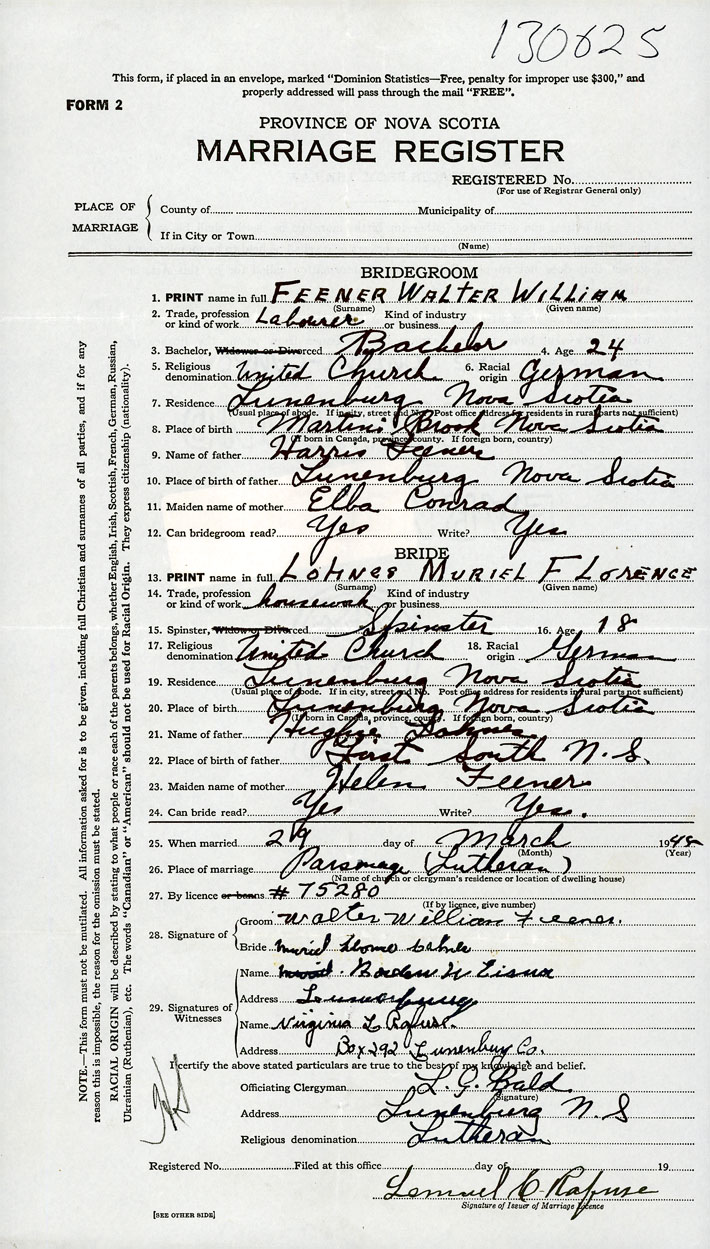 130625
This form, if placed in an envelope, marked "Dominion Statistics—Free, penalty for improper use $300," and
properly addressed will pass through the mail "FREE".
FORM 2
PROVINCE OF NOVA SCOTIA
MARRIAGE REGISTER
REGISTERED No.
(For use of Registrar General only)
PLACE OF MARRIAGE
County of Municipality of
If in City or Town
(Name)
BRIDEGROOM
1. PRINT name in full FEENER WALTER WILLIAM
(Surname) (Given name)
2. Trade, profession or kind of work Labourer Kind of industry or business
3. Bachelor, Widower or Divorced Bachelor 4. Age 24
5. Religious denomination United Church 6. Racial origin German
7. Residence Lunenburg Nova Scotia
(Usual place of abode. If in city, street and No. Post office address for residents in rural parts not sufficient)
8. Place of birth Martins Brook Nova Scotia
(If born in Canada, province, county. If foreign born, country)
9. Name of father Harris Feener
10. Place of birth of father Lunenburg Nova Scotia
11. Maiden name of mother Elba Conrad
12. Can bridegroom read? Yes Write? Yes
BRIDE
13. PRINT name in full LOHNES MURIEL FLORENCE
(Surname) (Given name)
14. Trade, profession or kind of work housework Kind of industry or business
15. Spinster, Widow or Divorced Spinster 16. Age 18
17. Religious denomination United Church 18. Racial origin German
19. Residence Lunenburg Nova Scotia
(Usual place of abode. If in city, street and No. Post office address for residents in rural parts not sufficient)
20. Place of birth Lunenburg Nova Scotia
(If born in Canada, province, county. If foreign born, country)
21. Name of father Hughie Lohnes
22. Place of birth of father First South N.S.
23. Maiden name of mother Helen Feener
24. Can bride read? Yes Write? Yes.
25. When married 29 day of March 1948
(Month) (Year)
26. Place of marriage Parsonage (Lutheran)
(Name of church or clergyman's residence or location of dwelling house)
27. By licence or banns # 75280
(If by licence, give number)
28. Signature of
Groom Walter William Feener.
Bride Muriel
29. Signatures of Witnesses
Name Borden W Eisnor
Address Lunenburg
Name Virginia L Rafuse.
Address Box 292 Lunenburg Co.
I certify the above stated particulars are true to the best of my knowledge and belief.
Officiating Clergyman L. G. Bald
(Signature)
Address Lunenburg N.S
Religious denomination Lutheran
Registered No. Filed at this office day of 19
Lemuel C. Rafuse
Signature of Issuer of Marriage Licence
[SEE OTHER SIDE]
NOTE.—This form must not be mutilated. All information asked for is to be given, including full Christian and surnames of all parties, and if for any
reason this is impossible, the reason for the omission must be stated.
RACIAL ORIGIN will be described by stating to what people or race each of the parents belongs, whether English, Irish, Scottish, French, German, Russian,
Ukrainian (Ruthenian), etc. The words "Canadian" or "American" should not be used for Racial Origin. They express citizenship (nationality).